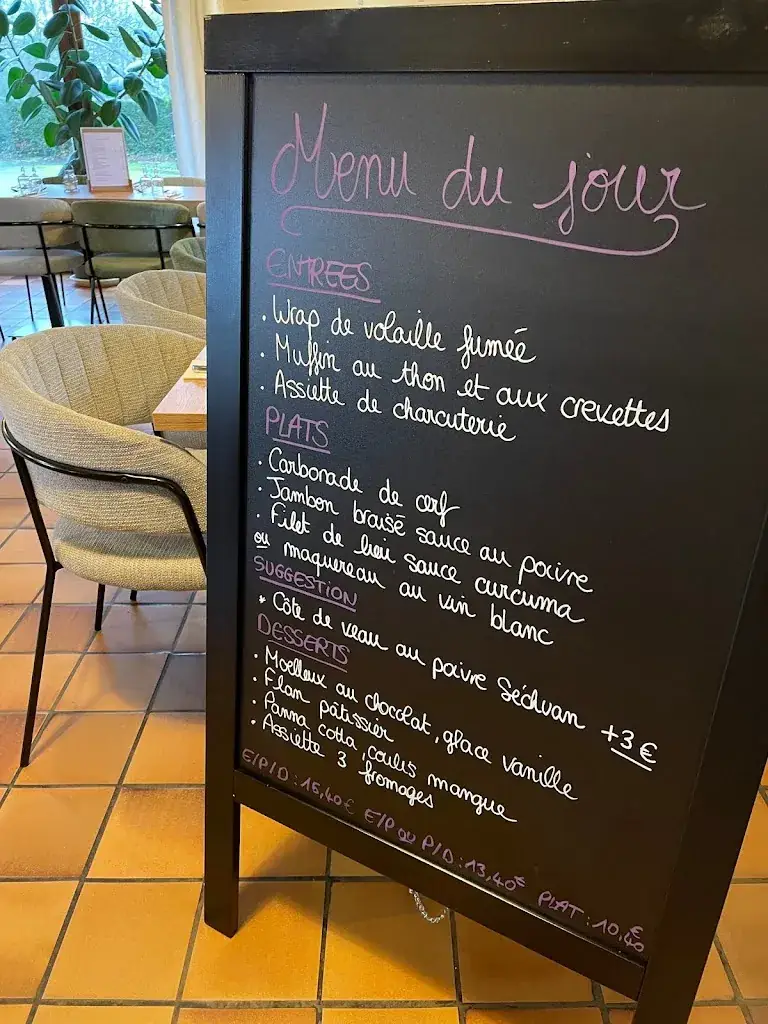 Menu du jour
ENTREES
. Wrap de volaille fumée
. Muffin au thon et aux crevettes
. Assiette de charcuterie
PLATS
. Carbonade de cerf
. Jambon braisé sauce au poivre
. Filet de lieu sauce curcuma
ou maquereau au vin blanc
SUGGESTION
* Côte de veau au poivre Séchuan +3€
DESSERTS
. Moelleux au chocolat, glace vanille
. Flan pâtissier
. Panna cotta, coulis mangue
. Assiette 3 fromages
E/P/D : 15,40€ E/P ou P/D : 13,40€ PLAT : 10,40€